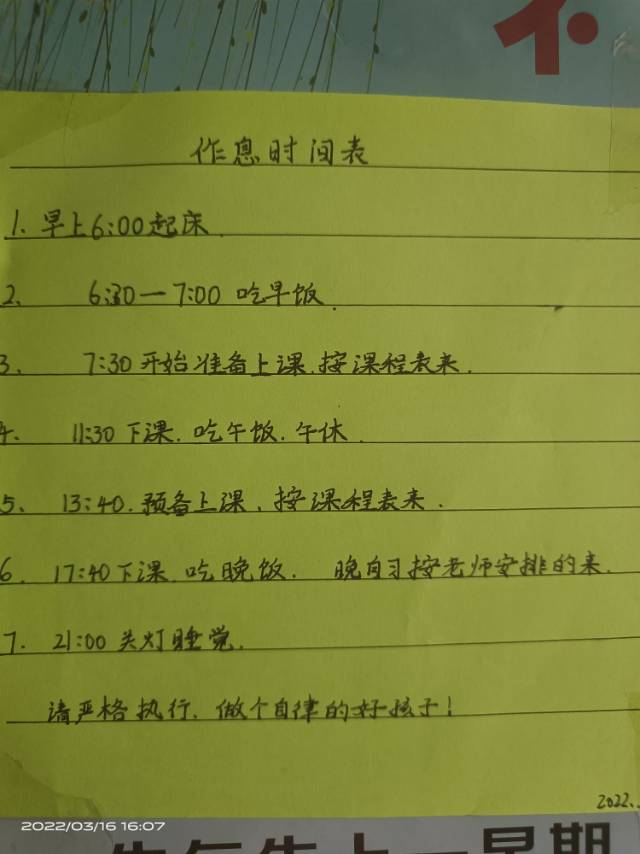 作息时间表
1. 早上6:00起床.
2、 6:30一7:00 吃早饭.
3、 7:30开始准备上课.按课程表来.
4. 11:30下课.吃午饭.午休.
5、 13:40.预备上课.按课程表来.
6. 17:40下课.吃晚饭. 晚自习按老师安排的来.
7. 21:00关灯睡觉.
请严格执行.做个自律的好孩子!
2022.
2022/03/16 16:07